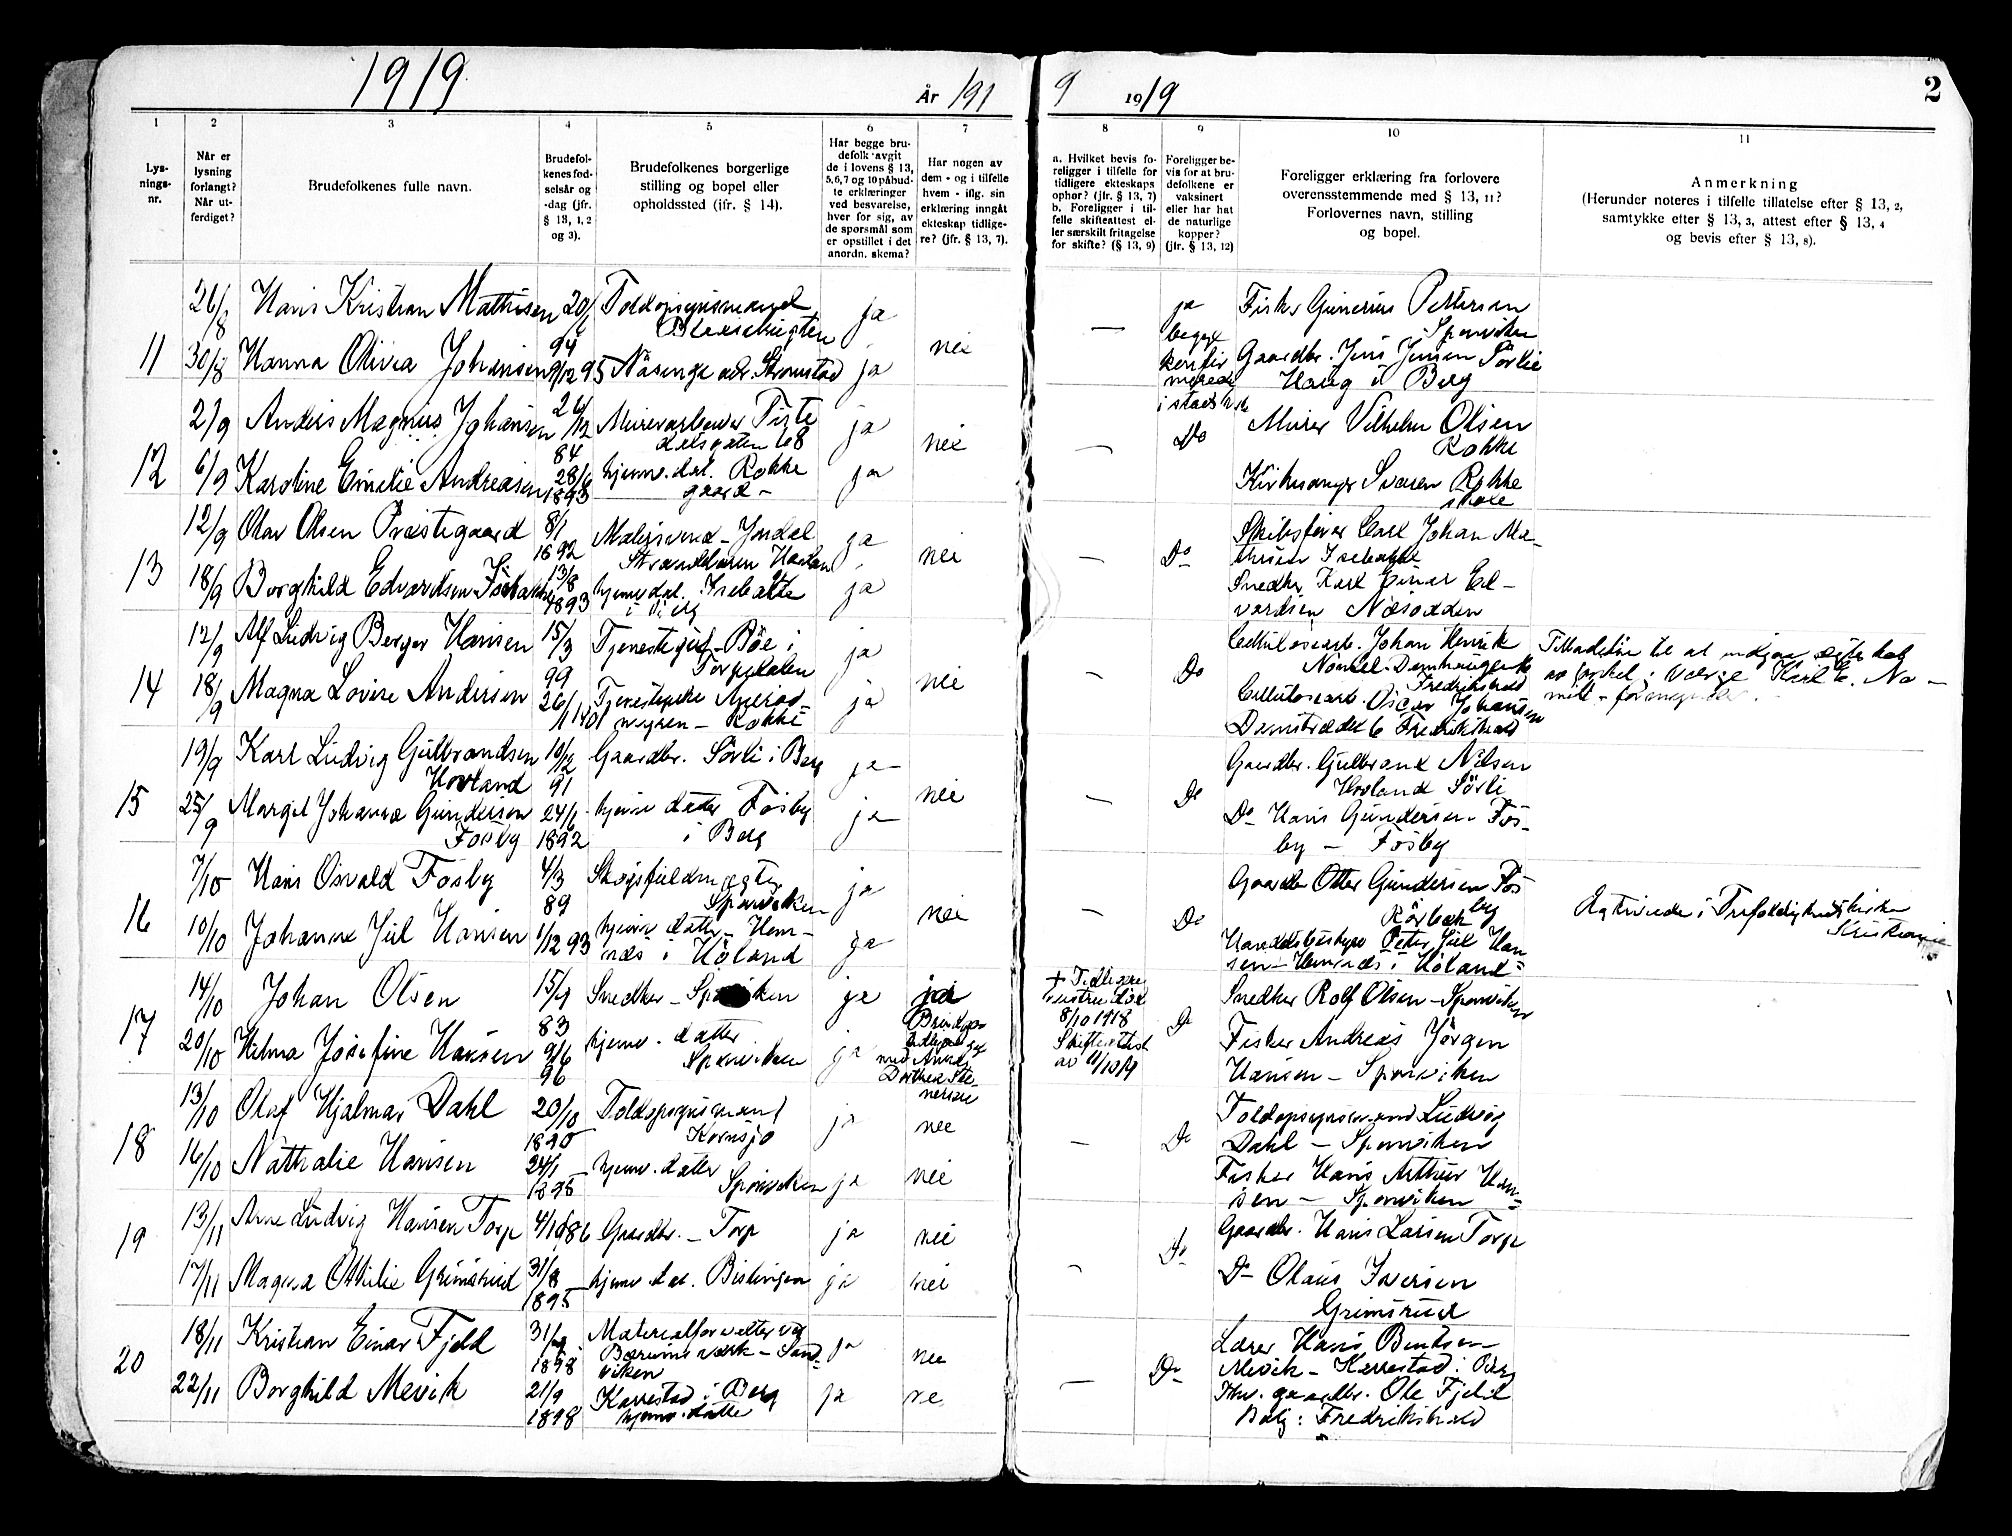 1919
År 191
9 1919
2
1 2 3 4 5 6 7 8 9 10 11
Lys-
nings-
nr.
Når er
lysning
forlangt?
Når ut-
ferdiget?
Brudefolkenes fulle navn.
Brudefol-
kenes fød-
selsår og
-dag (jfr.
§ 13, 1, 2
og 3).
Brudefolkenes borgerlige
stilling og bopel eller
opholdssted (jfr. § 14).
Har begge bru-
defolk avgit
de i lovens § 13,
5,6,7 og 10 påbud-
te erklæringer
ved besvarelse,
hver for sig, av
de spørsmål som
er opstillet i det
anordn. skema?
Har nogen av
dem - og i tilfelle
hvem - iflg. sin
erklæring inngått
ekteskap tidlige-
re? (jfr. § 13, 7).
a. Hvilket bevis fo-
religger i tilfelle for
tidligere ekteskaps
ophør? (jfr. § 13, 7)
b. Foreligger i til-
felle skifteattest el-
ler særskilt fritagelse
for skifte? (§ 13, 9)
Foreligger be-
vis for at bru-
defolkene er
vaksinert
eller har hat
de naturlige
kopper?
(jfr. § 13, 12)
Foreligger erklæring fra forlovere
overensstemmende med § 13, 11?
Forlovernes navn, stilling
og bopel.
Anmerkning
(Herunder noteres i tilfelle tillatelse efter § 13, 2,
samtykke efter § 13, 3, attest efter § 13, 4
og bevis efter § 13, 8).
11
26/8 Hans Kristian Mathisen 20/ 94 Toldopsynsmand
ja
30/8 Hanna Olivia Johansen 9/12 95 Näsinge adr. Strømstad ja
nei
—
ja
begge
konfir
merede
Fisker Gunerius Pettersen
Sponviken
Gaardbr. Jens Jensen Sörlie
Haug i Berg
12
2/9 Anders Magnus Johansen 26/12 84 Murerarbeider Tiste
dalsgaten 68
ja
6/9 Karoline Emelie Andreasen 28/6 1893 hjemv. dat. Rokke
gaard -
ja
nei
—
Do
Murer Vilhelm Olsen
Rokke
Kirkesanger Svasen Rokke
skole
13
12/9 Olav Olsen Præstegaard 8/1 1892 Malersvend - Yndal
ja
18/9 Borghild Edvardsen 13/8 1893 hjemv. dat. Isebakke
i Berg
ja
nei
—
Do
Skibsfører Carl Johan Ma-
thisen Isebakke
Snedker Karl Einar Ed-
vardsen Næsodden
14
12/9 Alf Ludvig Berger Hansen 15/3 99 Tjenestegut - Böe i
Torpedalen
ja
18/9 Magna Lovise Andersen 26/1 1901 Tjenestepike
- Rokke
ja
nei
—
Do
Cellulosearb. Johan Henrik
Fredrikshald
Cellulosearb. Oscar Johansen
Damstrædet 6 Fredrikshald
Tilladelse til at indgaa egteskab
15
19/9 Karl Ludvig Gulbrandsen
Hovland
10/2 91 Gaardbr. Sörli i Berg
ja
25/9 Margit Johanne Gundersen
Fosby
24/6 1892 hjemv. datter Fosby
i Berg
ja
nei
—
Do
Gaardbr. Gulbrand Nilsen
Hovland Sörli
Do Hans Gundersen Fos-
by - Fosby
16
7/10 Hans Osvald Fosby 4/3 89 Skogsfuldmægtig
Sponviken
ja
10/10 Johanne Juil Hansen 1/12 93 hjemv. datter - Hem-
næs i Höland
ja
nei
—
Do
Gaardbr Otter Gundersen Fos
by
Rörbæk
Peter Juil Han
sen - Hemnæs i Höland
Ægteviede i Trefoldighedskirken
Kristiania
17
14/10 Johan Olsen 15/9 83 Snedker - Sponviken ja
ja
Brudgom
med Anna
Dorthea Ste-
nersen
20/10 Hilma Josefine Hansen 9/6 96 hjemv. datter
Sponviken
ja
+ Tidligere
hustru död
8/10 1918
Skifteattest
av 11/10 19
Do
Snedker Rolf Olsen - Sponviken
Fisker Andreas Jörgen
Hansen - Sponviken
18
13/10 Olaf Hjalmar Dahl 20/10 1890 Toldopsynsmand
Kornsjö
ja nei
16/10 Nathalie Hansen 24/1 1895 hjemv. datter
Sponviken
ja nei
—
Do
Toldopsynsmand Ludvig
Dahl - Sponviken
Fisker Hans Arthur Han-
sen - Sponviken
19
13/11 Arne Ludvig Hansen Torp 4/10 86 Gaardbr. - Torp ja nei
17/11 Magna Othilie Grimsrud 31/8 1895 hjemv. dat. Bislingen ja nei
—
Do
Gaardbr. Hans Larsen Torp
Do Olaus Iversen
Grimsrud
20
18/11 Kristian Einar Fjeld 31/ 1898 Materialforvalter ved
Bærums værk - Sand-
viken
ja nei
22/11 Borghild Mevik 21/9 1898 Karrestad i Berg
hjemv. datter
ja ne
—
Do
Lærer Hans Bentsen
Mevik - Karrestad i Berg
Fhv. gaardbr. Ole Fjeld
Fredrikshald